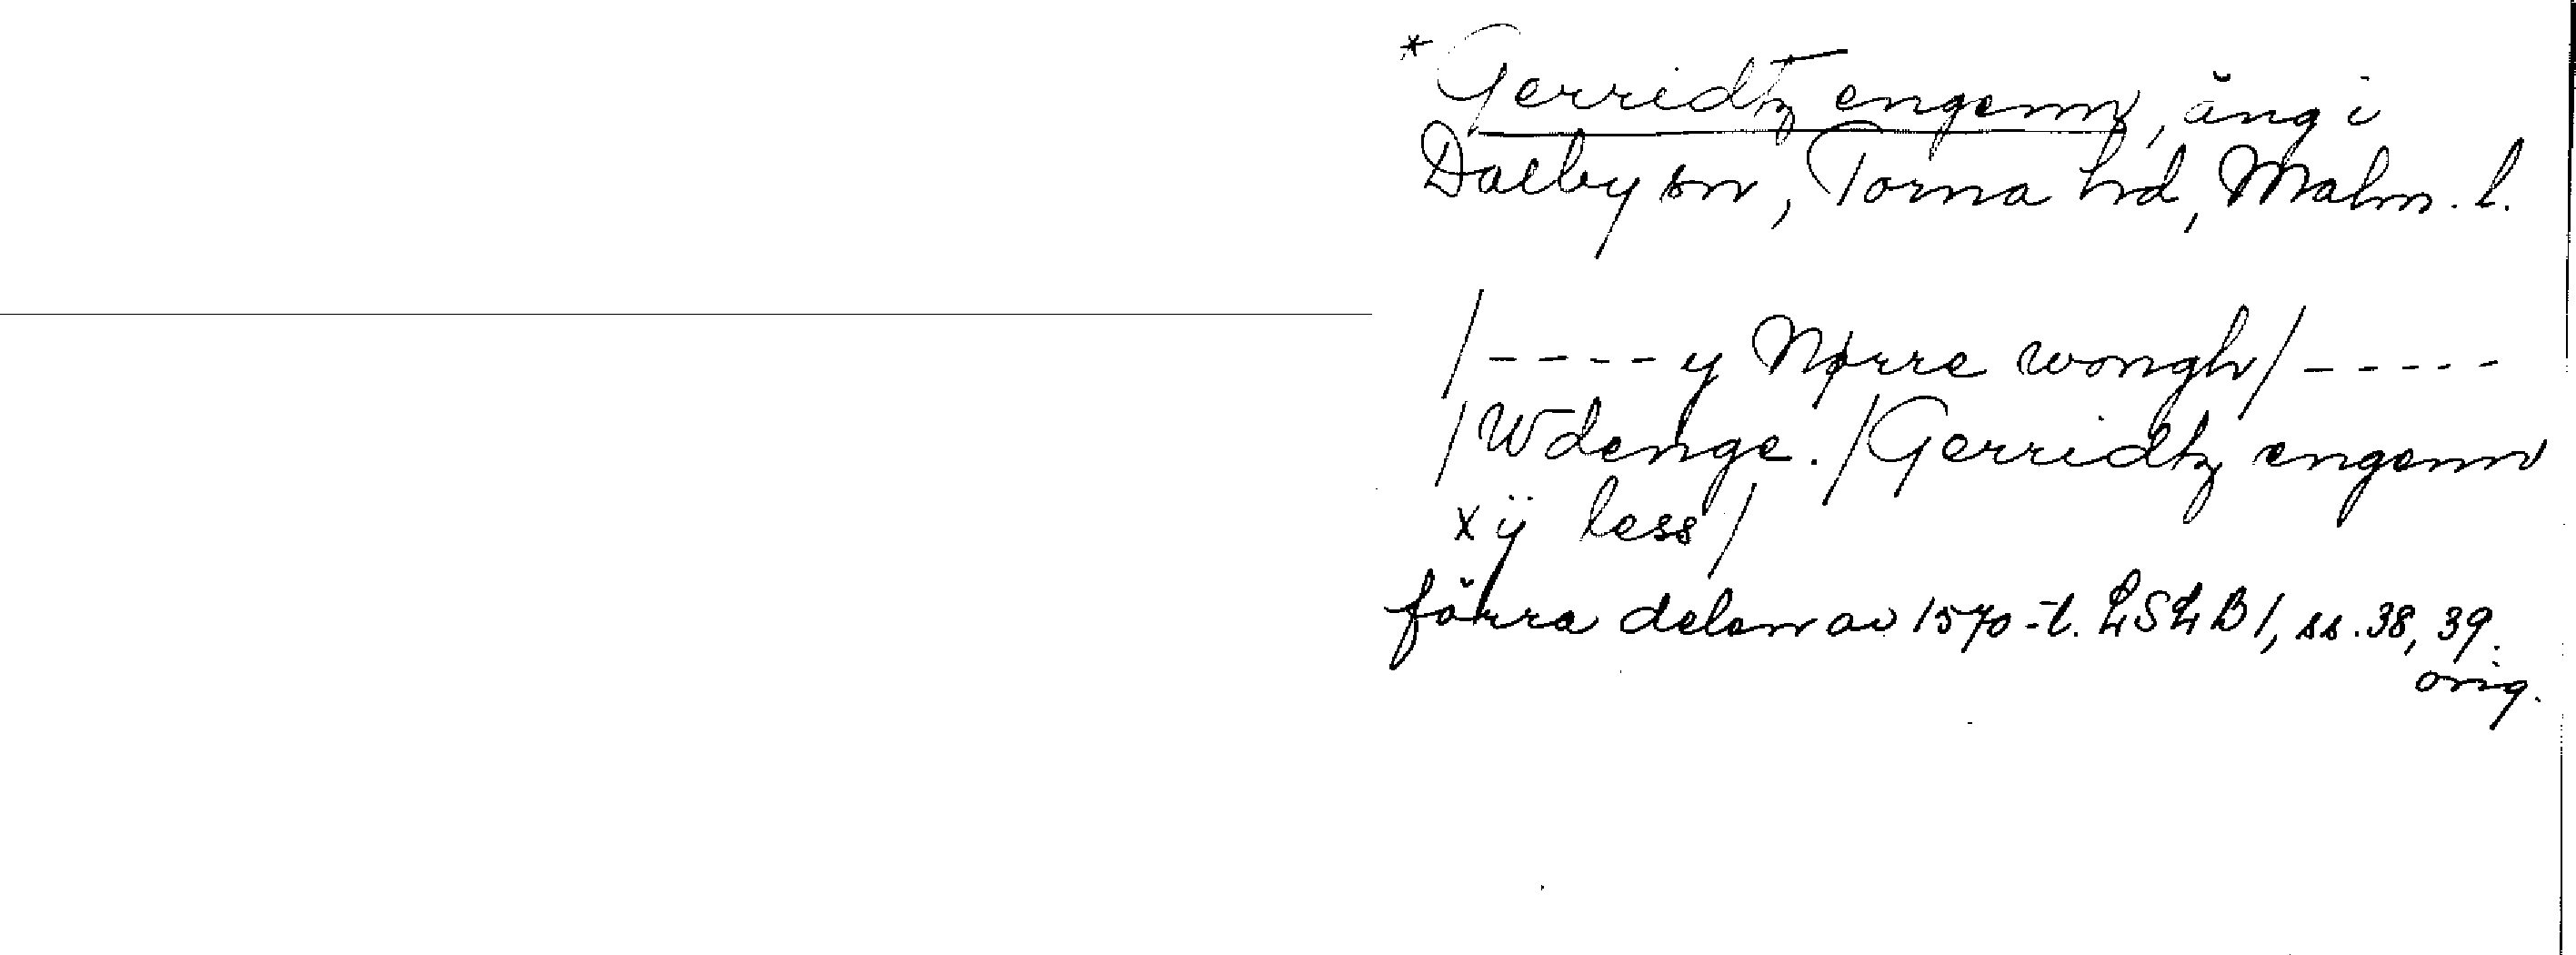 * Gerridtz engenn, äng i
Dalby sn, Torna hd, Malm. l.
/ - - - - y Nørre wongh / - - - - -
/ Wdenge. / Gerridtz engenn
xij less /
förra delen av 1570-t. LSLB 1, ss. 38, 39.
orig.